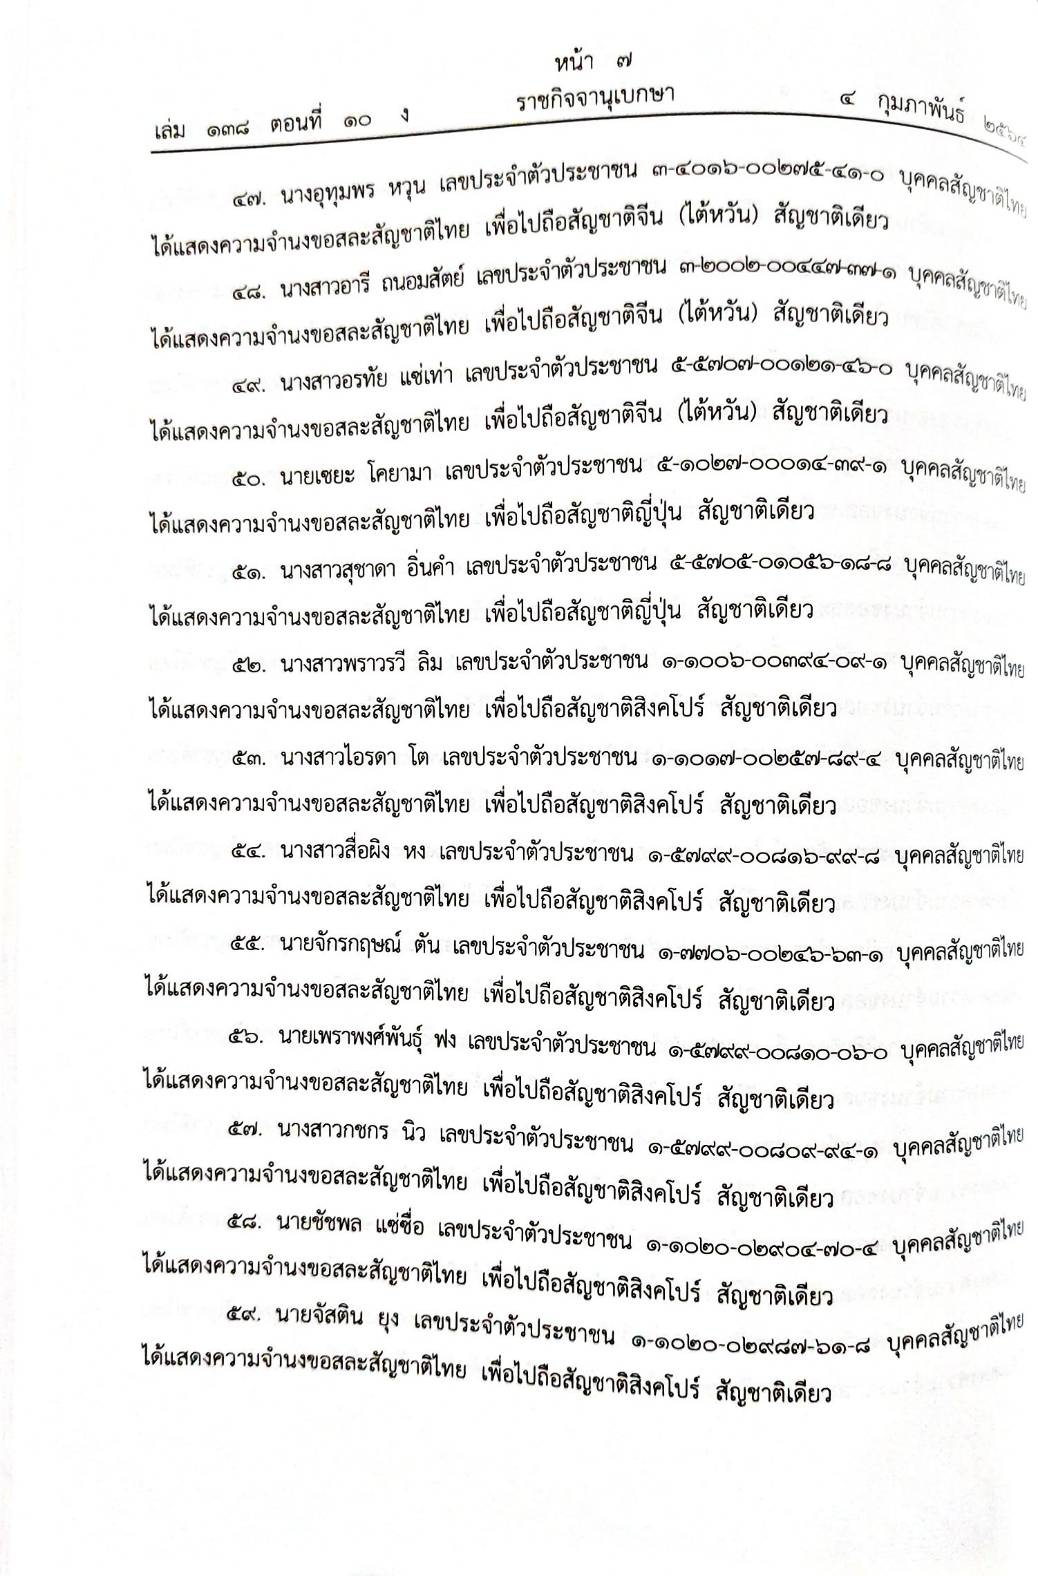 หน้า ๗
เล่ม ๑๓๘ ตอนที่ ๑๐ ง ราชกิจจานุเบกษา ๔ กุมภาพันธ์ ๒๕๖๔
๔๗. นางอุทุมพร หวุน เลขประจำตัวประชาชน ๓-๔๐๑๖-๐๐๒๗๕-๔๑-๐ บุคคลสัญชาติไทย
ได้แสดงความจำนงขอสละสัญชาติไทย เพื่อไปถือสัญชาติจีน (ไต้หวัน) สัญชาติเดียว
๔๘. นางสาวอารี ถนอมสัตย์ เลขประจำตัวประชาชน ๓-๒๐๐๒-๐๐๔๔๗-๓๗-๑ บุคคลสัญชาติไทย
ได้แสดงความจำนงขอสละสัญชาติไทย เพื่อไปถือสัญชาติจีน (ไต้หวัน) สัญชาติเดียว
๔๙. นางสาวอรทัย แซ่เท่า เลขประจำตัวประชาชน ๕-๕๗๐๗-๐๐๑๒๑-๔๖-๐ บุคคลสัญชาติไทย
ได้แสดงความจำนงขอสละสัญชาติไทย เพื่อไปถือสัญชาติจีน (ไต้หวัน) สัญชาติเดียว
๕๐. นายเซยะ โคยามา เลขประจำตัวประชาชน ๕-๑๐๒๗-๐๐๐๑๔-๓๙-๑ บุคคลสัญชาติไทย
ได้แสดงความจำนงขอสละสัญชาติไทย เพื่อไปถือสัญชาติญี่ปุ่น สัญชาติเดียว
๕๑. นางสาวสุชาดา อิ่นคำ เลขประจำตัวประชาชน ๕-๕๗๐๕-๐๑๐๕๖-๑๘-๘ บุคคลสัญชาติไทย
ได้แสดงความจำนงขอสละสัญชาติไทย เพื่อไปถือสัญชาติญี่ปุ่น สัญชาติเดียว
๕๒. นางสาวพราวรวี ลิม เลขประจำตัวประชาชน ๑-๑๐๐๖-๐๐๓๙๔-๐๙-๑ บุคคลสัญชาติไทย
ได้แสดงความจำนงขอสละสัญชาติไทย เพื่อไปถือสัญชาติสิงคโปร์ สัญชาติเดียว
๕๓. นางสาวไอรดา โต เลขประจำตัวประชาชน ๑-๑๐๑๗-๐๐๒๕๗-๘๙-๔ บุคคลสัญชาติไทย
ได้แสดงความจำนงขอสละสัญชาติไทย เพื่อไปถือสัญชาติสิงคโปร์ สัญชาติเดียว
๕๔. นางสาวสื่อผิง หง เลขประจำตัวประชาชน ๑-๕๗๙๙-๐๐๘๑๖-๙๙-๘ บุคคลสัญชาติไทย
ได้แสดงความจำนงขอสละสัญชาติไทย เพื่อไปถือสัญชาติสิงคโปร์ สัญชาติเดียว
๕๕. นายจักรกฤษณ์ ตัน เลขประจำตัวประชาชน ๑-๗๗๐๖-๐๐๒๔๖-๖๓-๑ บุคคลสัญชาติไทย
ได้แสดงความจำนงขอสละสัญชาติไทย เพื่อไปถือสัญชาติสิงคโปร์ สัญชาติเดียว
๕๖. นายเพราพงศ์พันธุ์ ฟง เลขประจำตัวประชาชน ๑-๕๗๙๙-๐๐๘๑๐-๐๖-๐ บุคคลสัญชาติไทย
ได้แสดงความจำนงขอสละสัญชาติไทย เพื่อไปถือสัญชาติสิงคโปร์ สัญชาติเดียว
๕๗. นางสาวกชกร นิว เลขประจำตัวประชาชน ๑-๕๗๙๙-๐๐๘๐๙-๙๔-๑ บุคคลสัญชาติไทย
ได้แสดงความจำนงขอสละสัญชาติไทย เพื่อไปถือสัญชาติสิงคโปร์ สัญชาติเดียว
๕๘. นายชัชพล แซ่ซื่อ เลขประจำตัวประชาชน ๑-๑๐๒๐-๐๒๙๐๔-๗๐-๔ บุคคลสัญชาติไทย
ได้แสดงความจำนงขอสละสัญชาติไทย เพื่อไปถือสัญชาติสิงคโปร์ สัญชาติเดียว
๕๙. นายจัสติน ยุง เลขประจำตัวประชาชน ๑-๑๐๒๐-๐๒๙๘๗-๖๑-๘ บุคคลสัญชาติไทย
ได้แสดงความจำนงขอสละสัญชาติไทย เพื่อไปถือสัญชาติสิงคโปร์ สัญชาติเดียว